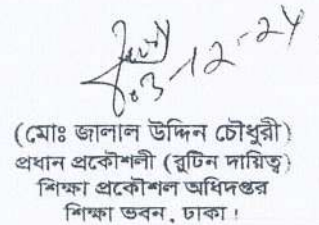 03-12-24
(মোঃ জালাল উদ্দিন চৌধুরী)
প্রধান প্রকৌশলী (রুটিন দায়িত্ব)
শিক্ষা প্রকৌশল অধিদপ্তর
শিক্ষা ভবন, ঢাকা।